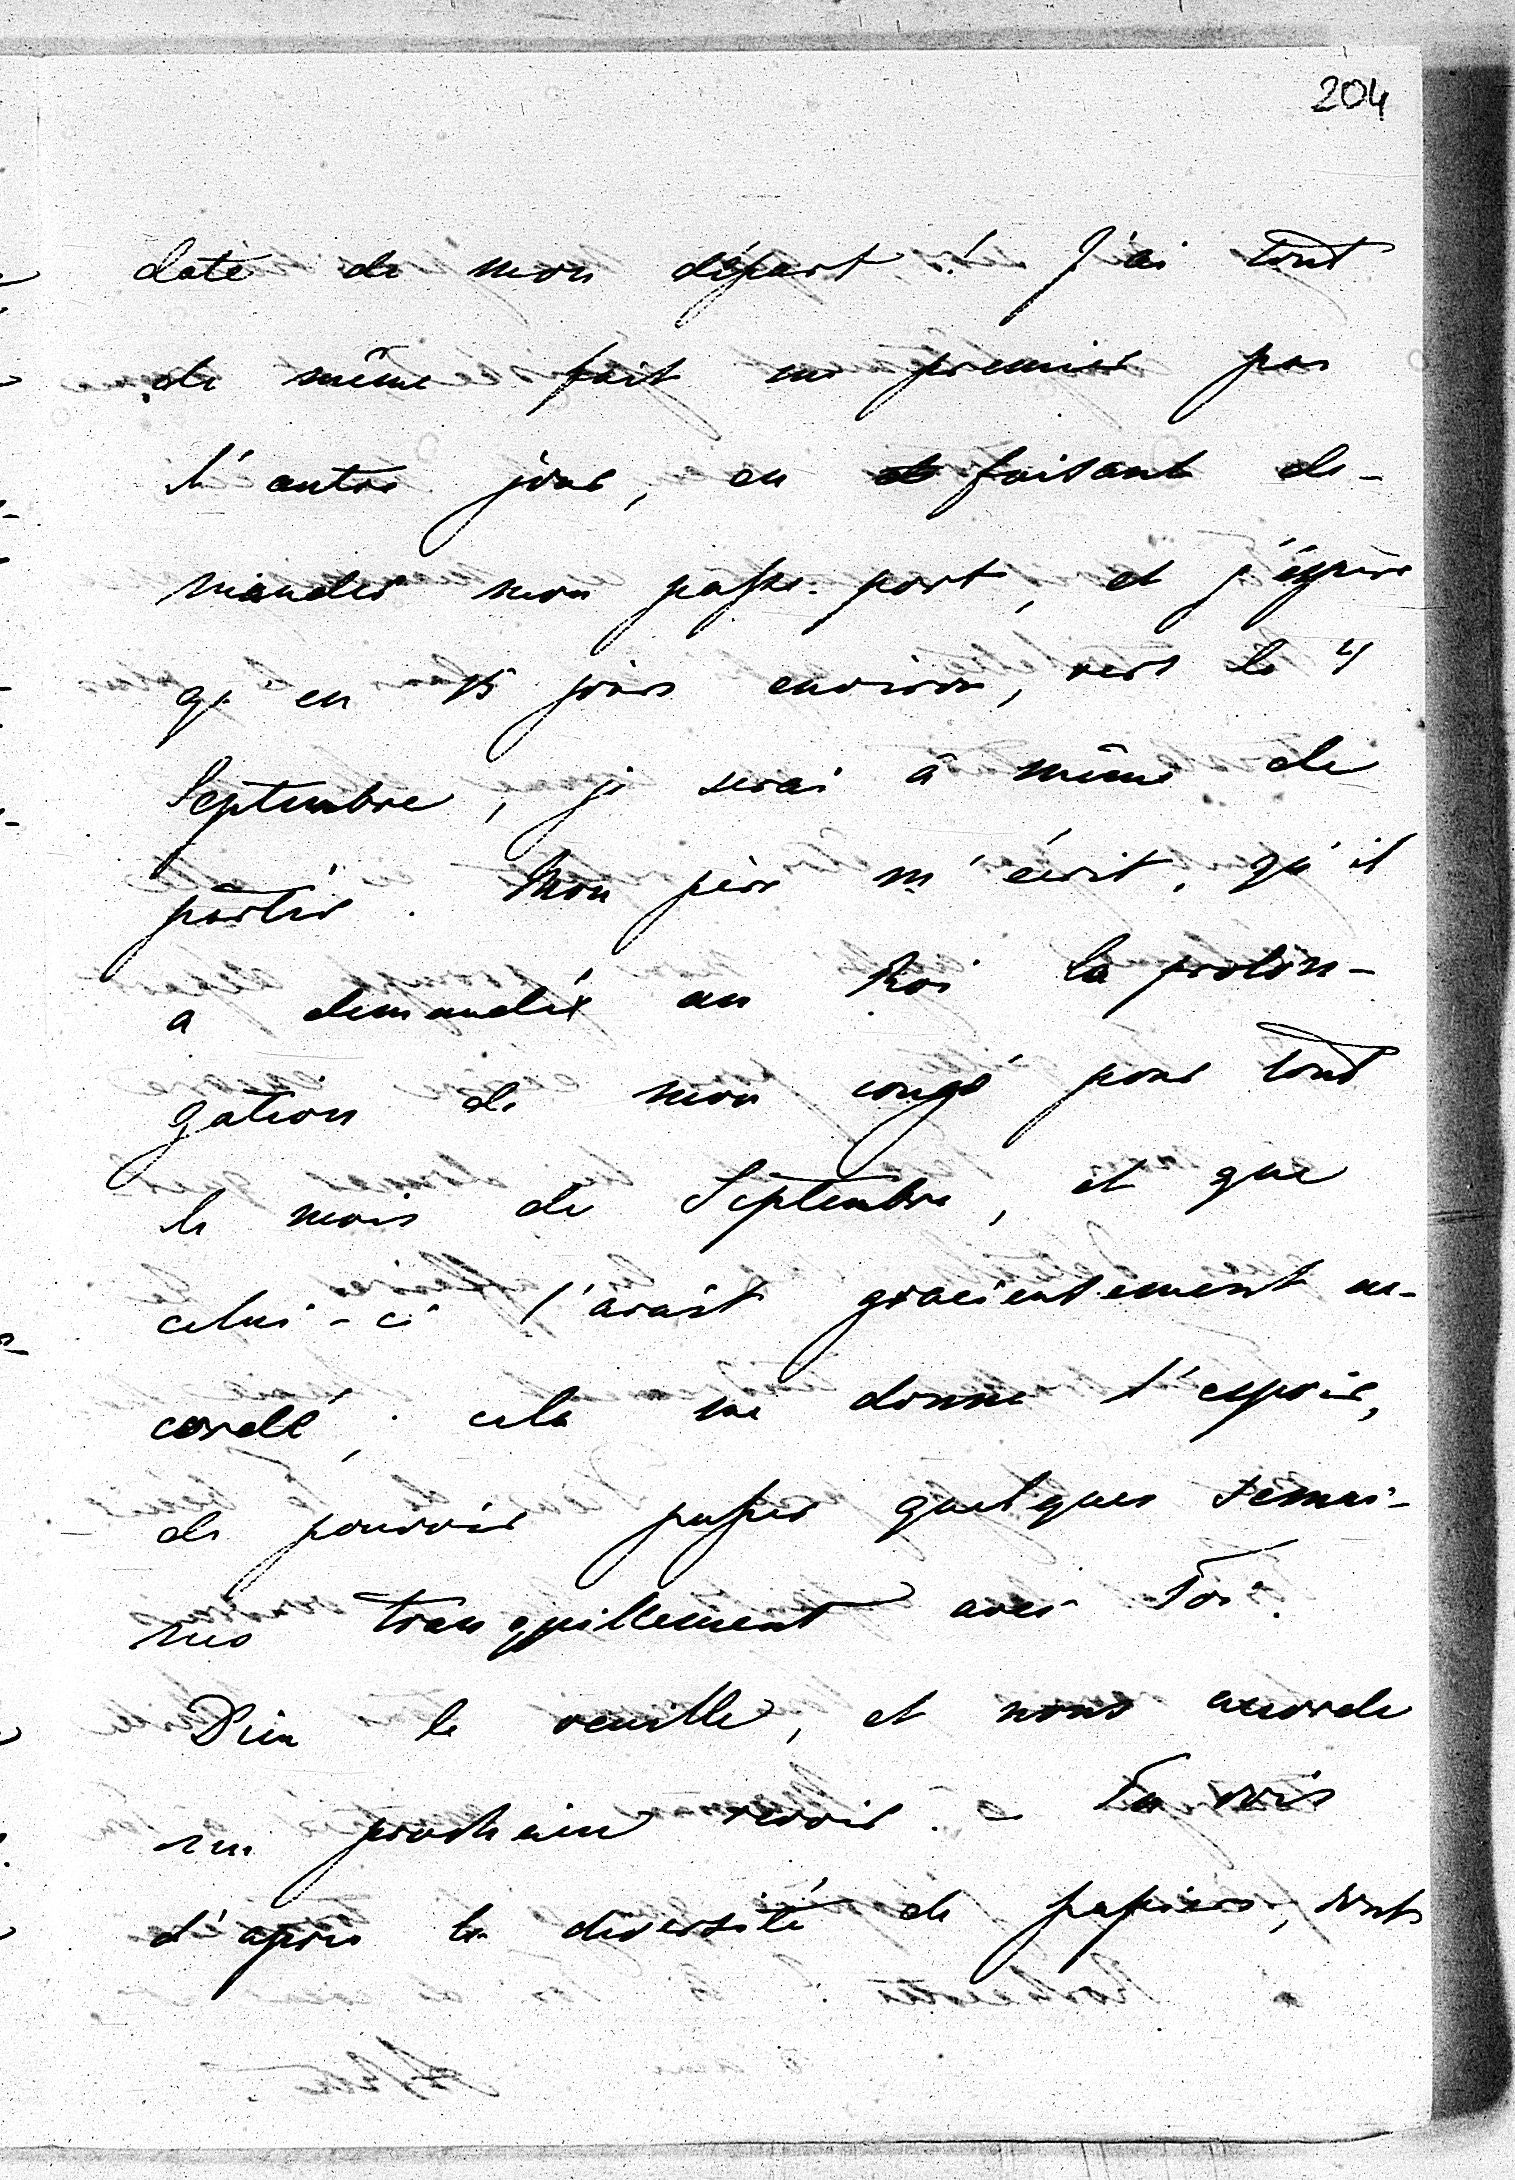 204
date de mon départ! J'ai tout
de même fait un premier pas
l'autre jour, en faisant de-
mander mon passe-port, et j'espère
qu'en 15 jours environ, vers le 4
Septembre, je serai à même de
partir. Mon père m'écrit, qu'il
a demandé au Roi la prolon-
gation de mon congé pour tout
le mois de Septembre, et que
celui-ci l'avait gracieusement ac-
cordé; cela me donne l'espoir,
de pouvoir passer quelques semai-
nes tranquillement avec Toi.
Dieu le veuille, et nous accorde
un prochain revoir. - Tu vois
d'après la diversité de papiers, dont